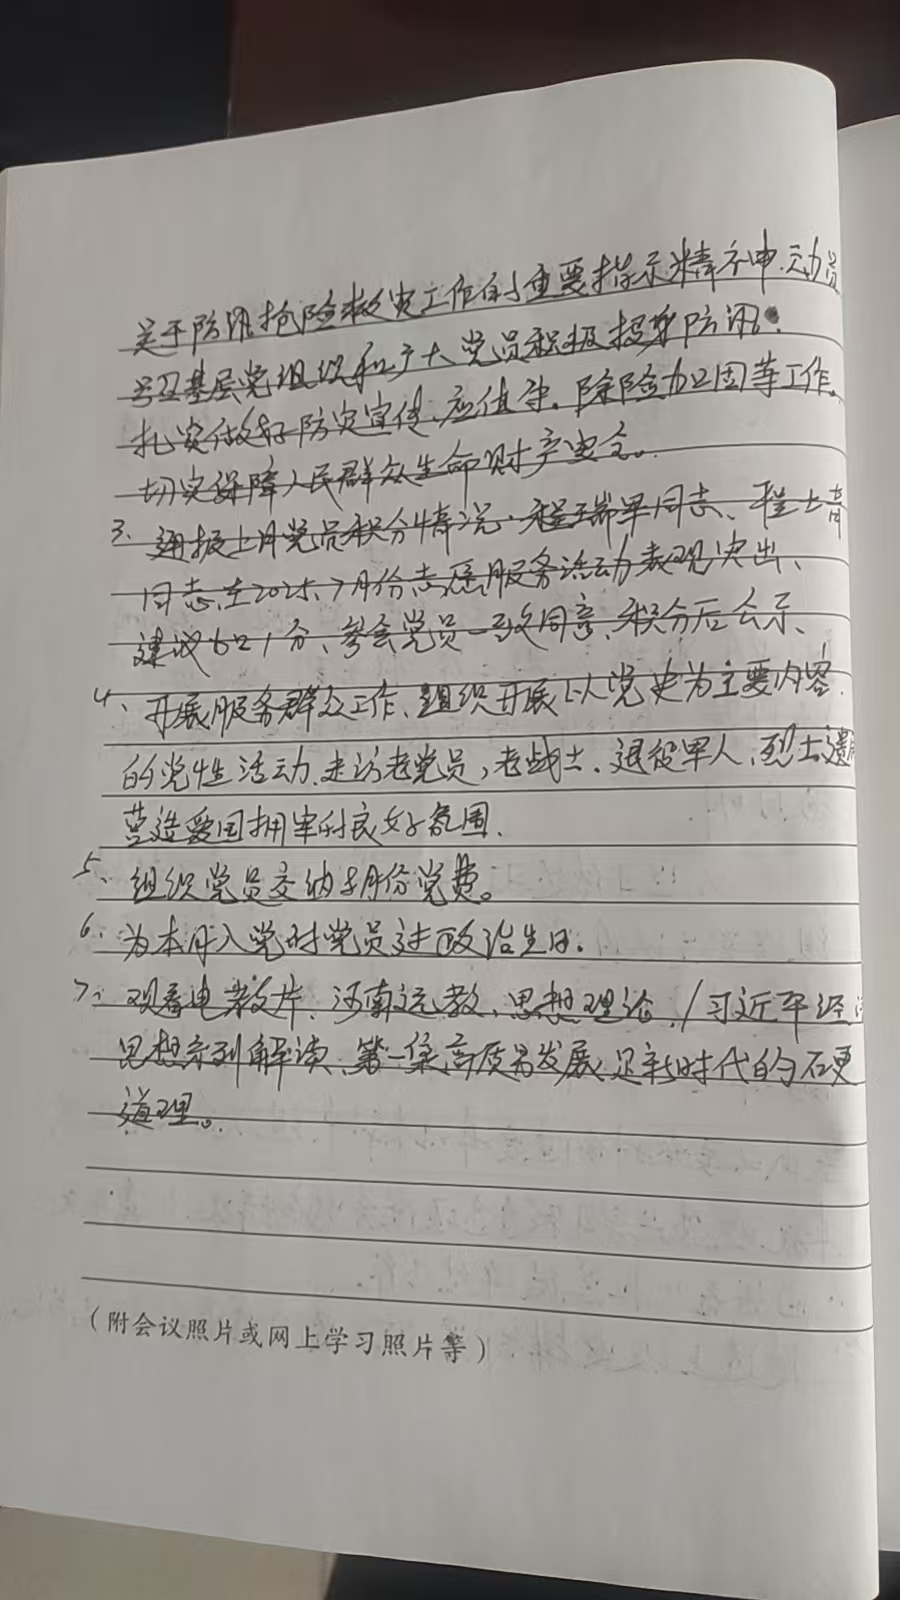 关于防汛抢险救灾工作的重要指示精神.动员
号召基层党组织和广大党员积极投身防汛.
扎实做好防灾宣传、应值守、除险加固等工作。
切实保障人民群众生命财产安全。
3、通报上月党员积分情况.程瑞军同志、程士
同志在2025.7月份志愿服务活动表现突出、
建议加1分、参会党员一致同意、积分后公示、
4、开展服务群众工作、组织开展以党史为主要内容.
的党性活动.走访老党员,老战士、退役军人、烈士遗
营造爱国拥军的良好氛围.
5、组织党员交纳8月份党费。
6、为本月入党的党员过政治生日.
7、观看电教片.河南远教、思想理论./习近平经
思想系列解读、第一集高质量发展是新时代的硬
道理。
(附会议照片或网上学习照片等)